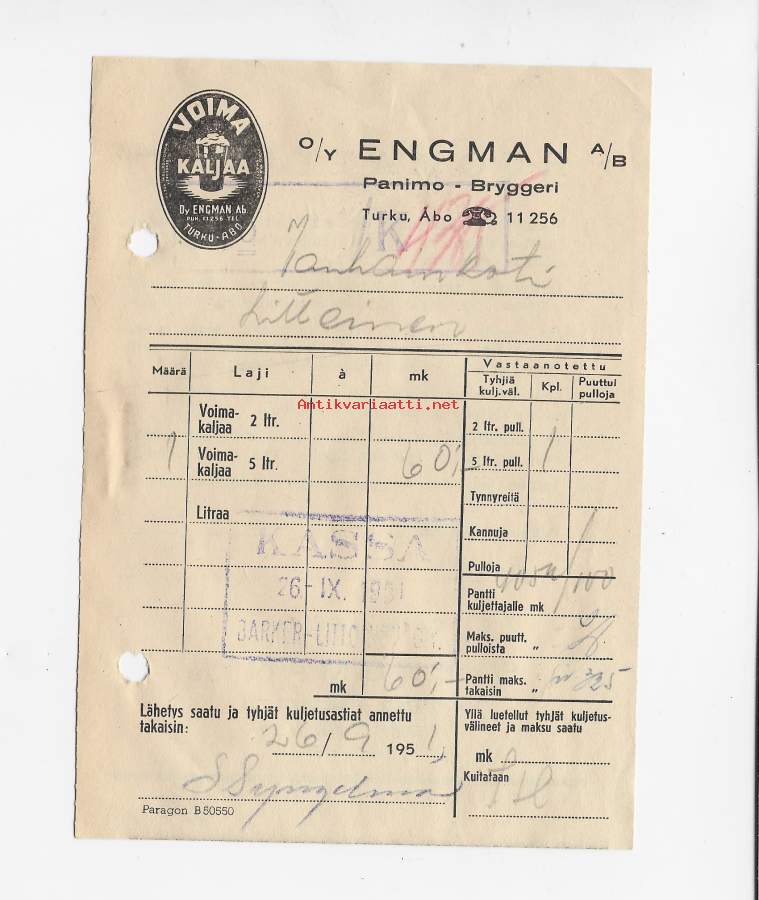 VOIMA
KALJAA
Oy ENGMAN Ab.
PUH. 11256 TEL
TURKU-ÅBO
O/Y ENGMAN A/B
Panimo - Bryggeri
Turku, Åbo 11 256
K
Vanhainkoti
Littoinen
Määrä Laji à mk Vastaanotettu
Tyhjiä kulj.väl. Kpl. Puuttui pulloja
Antikvariaatti.net
Voima-kaljaa 2 ltr. 2 ltr. pull.
1 Voima-kaljaa 5 ltr. 60,- 5 ltr. pull. 1
Tynnyreitä
Litraa Kannuja
KASSA
Pulloja
26-IX. 1951
Pantti kuljettajalle mk
BARKER-LITTOINEN
Maks. puutt. pulloista "
mk 60,- Pantti maks. takaisin "
Lähetys saatu ja tyhjät kuljetusastiat annettu
takaisin:
26/9 1951
Yllä luetellut tyhjät kuljetus-
välineet ja maksu saatu
mk
Kuitataan
Paragon B 50550